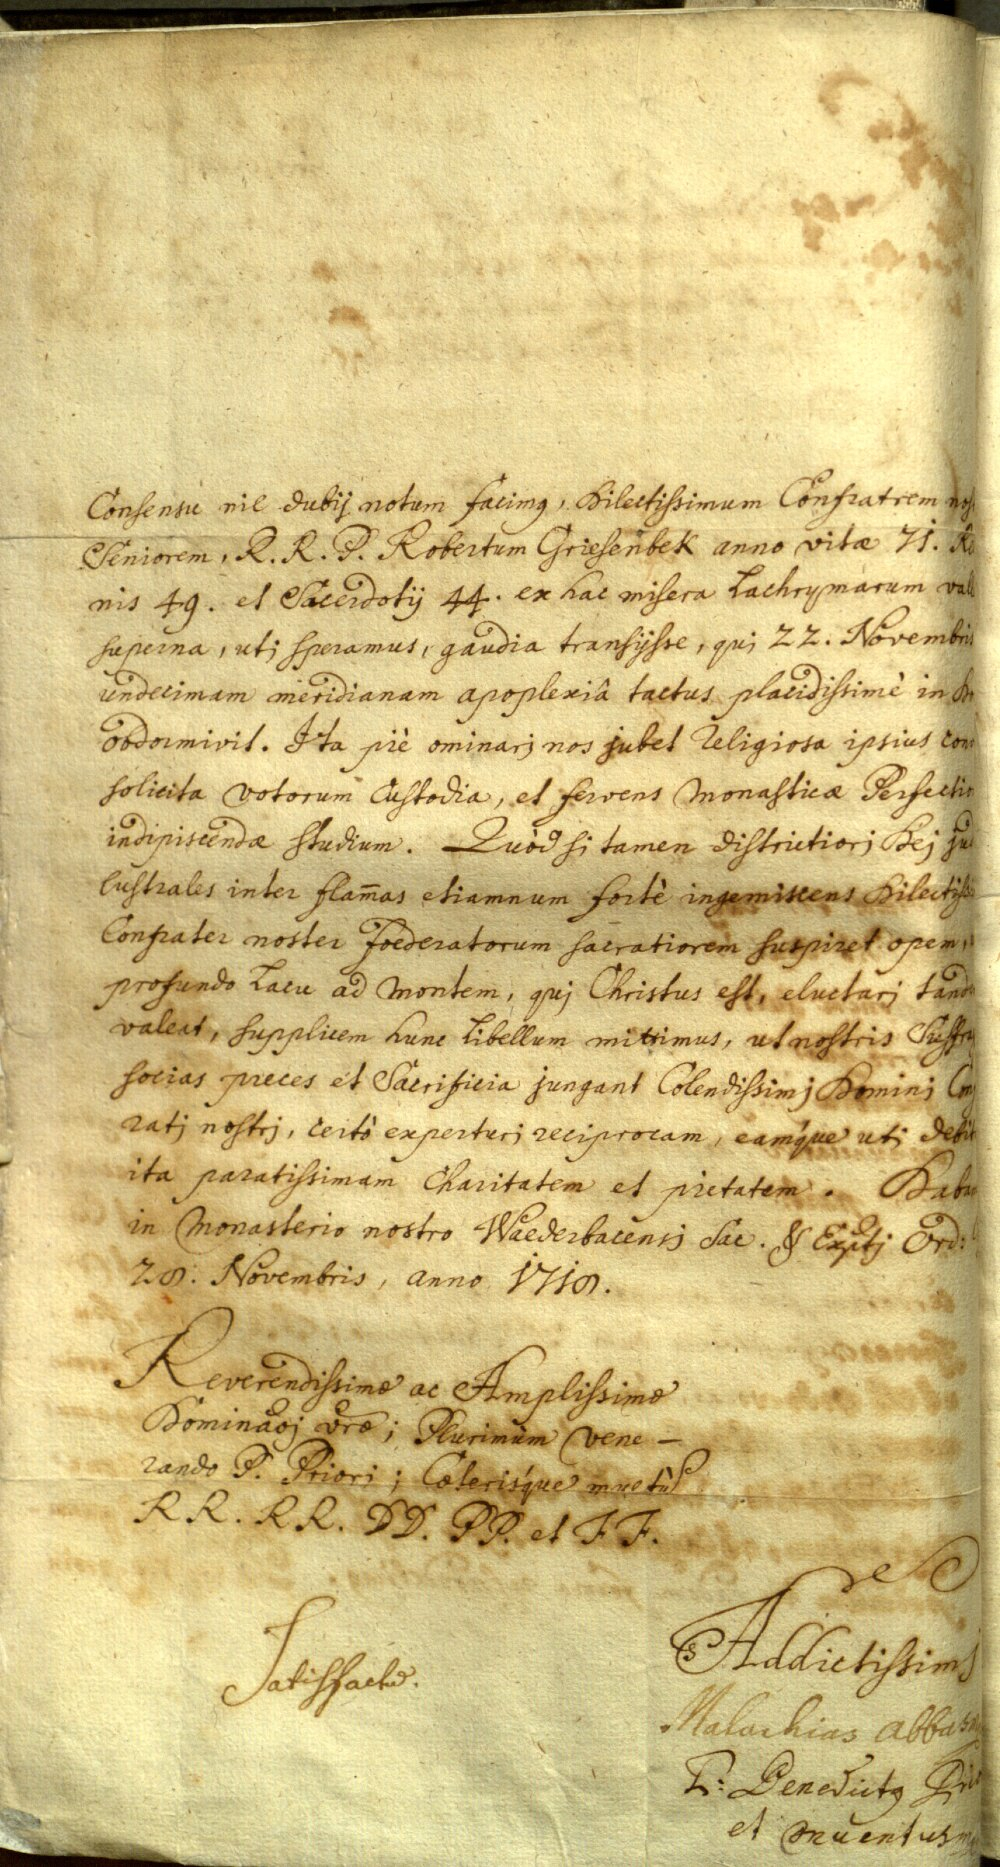 Consensu nil dubij notum facimꝯ, Dilectissimum Confratrem nos
Seniorem, R. R. P. Robertum Griesenbek anno vitæ 71. Re
nis 49. et Sacerdotij 44. ex hac misera Lachrymarum vall
superna, utj speramus, gaudia transijsse, quj 22. Novembris
undecimam meridianam apoplexiâ tactus placidissimè in
obdormivit. Ita piè ominarj nos jubet Religiosa ipsius con
solicita votorum Custodia, et fervens Monasticæ Perfectio
indipiscendæ studium. Quòd si tamen districtiorj Dej ju
lustrales inter flam̄as etiamnum fortè ingemiscens Dilectiss
Confrater noster Foederatorum sacratiorem suspiret opem,
profundo Lacu ad Montem, quj Christus est, eluctarj tand
valeat, supplicem hunc Libellum mittimus, ut nostris Suffra
socias preces et Sacrificia jungant Colendissimj Dominj Con
ratj nostrj, certò experturj reciprocam, eamq́ue utj debit
ita paratissimam Charitatem et pietatem. Daba
in Monasterio nostro Waederbacensj Sac. & Exptj Ord:
28. Novembris, anno 1718.
Reverendissimæ ac Amplissimæ
Dominaõj vræ; Plurimùm Vene-
rando P. Priorj; Cœterisq́ue
RR. RR. DD. PP. et FF.
Satisfactũ.
Addictissimj
Malachias abbas
P: Benedictꝯ Prio
et